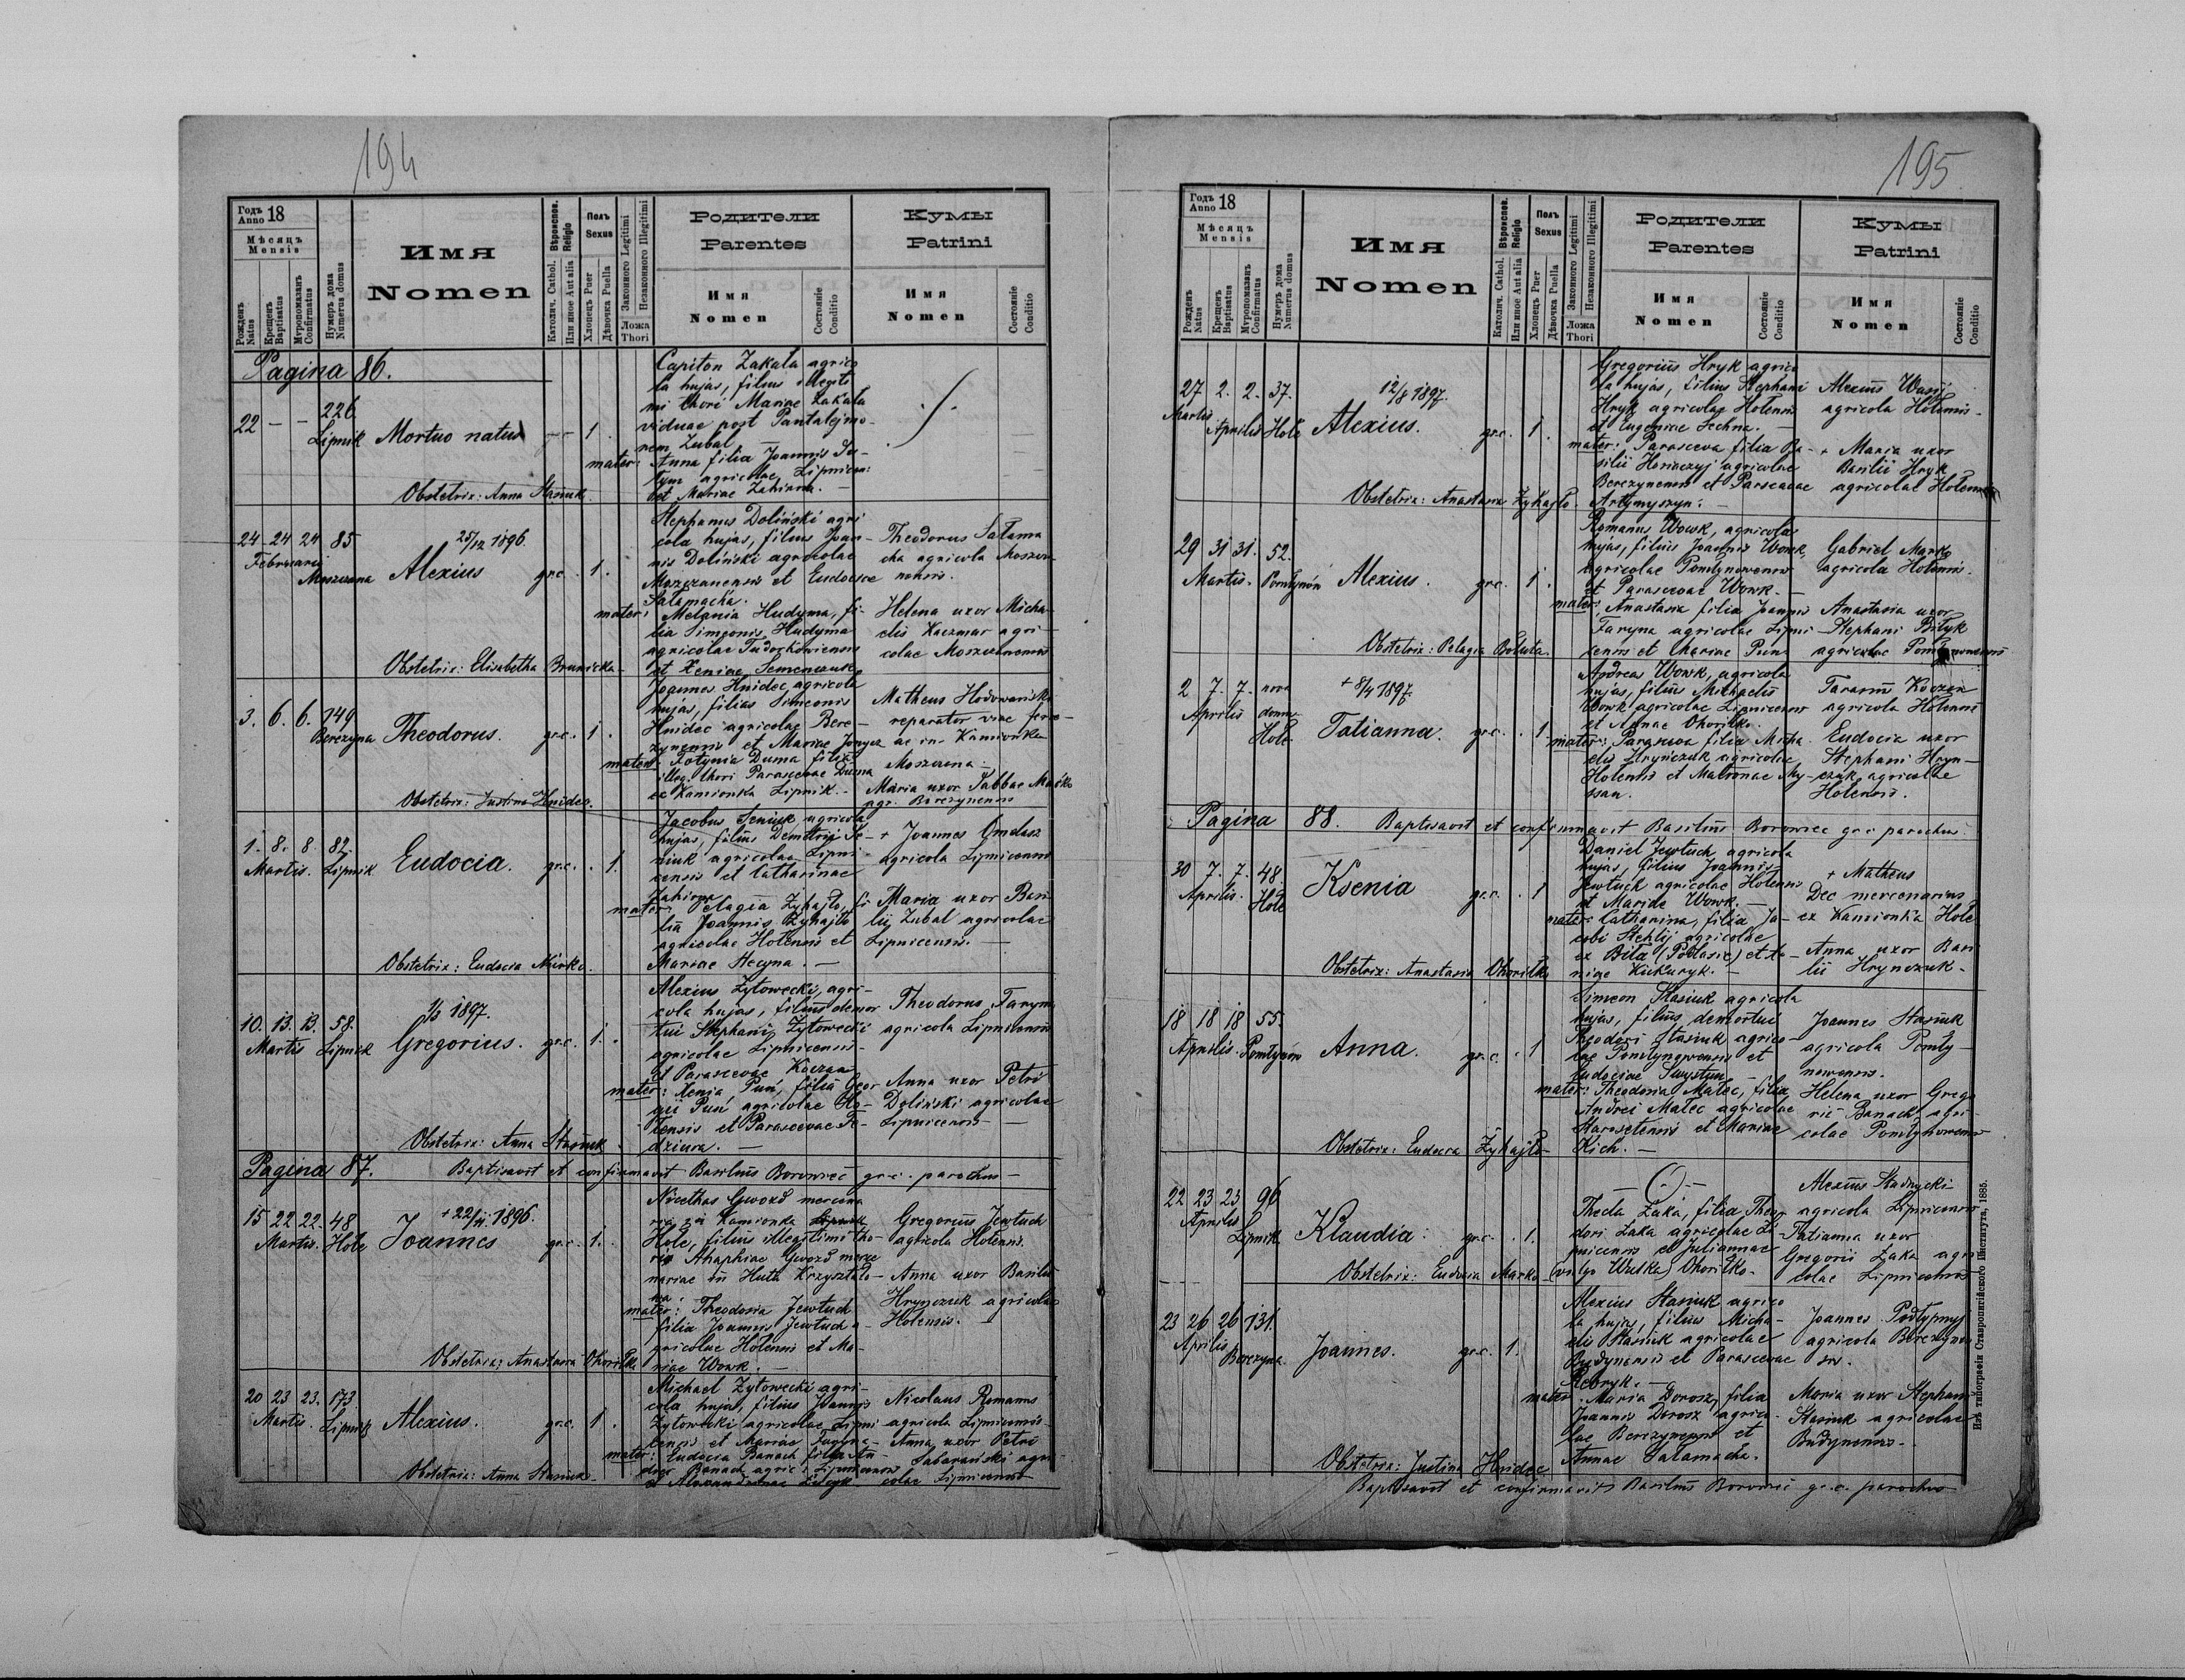 194
Годъ Anno 18
Мѣсяцъ Mensis
Рожденъ Natus
Крещенъ Baptisatus
Муропомазанъ Confirmatus
Нумеръ дома Numerus domus
Имя Nomen
Вѣроиспов. Religio
Католич. Cathol.
Или иное Aut alia
Полъ Sexus
Хлопецъ Puer
Дѣвочка Puella
Законного Legitimi
Незаконного Illegitimi
Ложа Thori
Родители Parentes
Имя Nomen
Состояніе Conditio
Кумы Patrini
Имя Nomen
Состояніе Conditio
Pagina 86.
22 — — 226
Lipnik Mortuo natus — 1.
Capiton Zakala agrico
la hujas, filius illegiti
mi thori Mariae Zakala
viduae post Pantalejmo-
nem Zubal —
mater: Anna filia Joannis
agricolae
et Mariae
Obstetrix: Anna Stasiuk
24 24 24 85
Februarii
Moszczana
25/12 1896.
Alexius gr.c. 1.
Stephanus Doliński agri
cola hujas, filius Joan-
nis Doliński agricolae
Moszczanensis et Eudociae
Salamacha.
mater: Melania Hudyma, fi-
lia Simeonis Hudyma
agricolae
et Xeniae Semenczuk
Theodorus Salama
cha agricola Moszcza
nensis.
Helena uxor Micha-
elis Kaczmar agri-
colae Moszczanensis
Obstetrix: Elisabetha
3. 6. 6. 149
Berezyna
Theodorus. gr.c. 1.
Joannes Hnidec agricola
hujas, filius Simeonis
Hnidec agricolae Bere-
zynensis et Mariae
mater: Fotynia Duma filia
illeg. thori Parascevae Duma
ex Kamionka Lipnik.
Matheus Hodowański
reparator viae ferre-
ae in Kamionka
Moszczana —
Maria uxor Sabbae Maśko
agr. Berezynensis
Obstetrix: Justina Hnidec.
1. 8. 8. 82.
Martis. Lipnik
Eudocia. gr.c. . 1.
Jacobus Seniuk agricola
hujas, filius Demetrii Se-
niuk agricolae Lipni-
censis et Catharinae
mater: Pelagia Zyhajlo, fi-
lia Joannis Zyhajlo
agricolae Holensis et
Mariae Hecyna. —
+ Joannes
agricola Lipnicensis
Maria uxor Basi
lii Zubal agricolae
Lipnicensis. —
Obstetrix: Eudocia
10. 13. 13. 58.
Martis Lipnik
1/3 1897.
Gregorius. gr.c. 1.
Alexius Zytowecki, agri-
cola hujas, filius demor
tui Stephani Zytowecki
agricolae Lipnicensis
et Parascevae
mater: Xenia Puń, filia Geor
gii Puń agricolae Ho-
lensis et Parascevae
Theodorus Faryna
agricola Lipnicensis
Anna uxor Petri
Doliński agricolae
Lipnicensis —
Obstetrix: Anna Stasiuk
Pagina 87. Baptisavit et confirmavit Basilius Borowiec gr.c. parochus —
15 22 22. 48
Martis. Hole
+ 22/11 1896.
Joannes gr.c. 1.
Nicethas Gwozd mercena
rius in Kamionka
Hole, filius illegitimi tho-
ri Anaphiae Gwozd merce
nariae in Huta Kryształo-
wa.
mater: Theodosia Jewtuch
filia Joannis Jewtuch a-
gricolae Holensis et Ma-
riae Wowk. —
Gregorius Jewtuch
agricola Holensis.
Anna uxor Basilii
Hrynczuk agricolae
Holensis.
Obstetrix: Anastasia Ohorilko
20 23 23. 173.
Martis. Lipnik
Alexius. gr.c. 1.
Michael Zytowecki agri-
cola hujas, filius Joannis
Zytowecki agricolae Lipni
censis et Mariae Faryna
mater: Eudocia Banach filia An-
dreae Banach agric. Lipnicensis
et
Nicolaus Romanus
agricola Lipnicensis
Anna uxor Petri
agri-
colae Lipnicensis
Obstetrix: Anna Stasiuk
195
Годъ Anno 18
Мѣсяцъ Mensis
Рожденъ Natus
Крещенъ Baptisatus
Муропомазанъ Confirmatus
Нумеръ дома Numerus domus
Имя Nomen
Вѣроиспов. Religio
Католич. Cathol.
Или иное Aut alia
Полъ Sexus
Хлопецъ Puer
Дѣвочка Puella
Законного Legitimi
Незаконного Illegitimi
Ложа Thori
Родители Parentes
Имя Nomen
Состояніе Conditio
Кумы Patrini
Имя Nomen
Состояніе Conditio
27 2. 2. 37.
Martis Aprilis Hole
12/8 1897.
Alexius. gr.c. 1.
Gregorius Hryk agrico
la hujas, filius Stephani
Hryk agricolae Holensis
et Eugeniae
mater: Parasceva filia Ba-
silii agricolae
Berezynensis et Parscevae
Artymyszyn.
Alexius
agricola Holensis.
+ Maria uxor
Basilii Hryk
agricolae Holensis
Obstetrix: Anastasia Zyhajlo
29 31 31. 52.
Martis. Pomlynów
Alexius. gr.c. 1.
Romanus Wowk, agricola
hujas, filius Joannis Wowk
agricolae Pomlynowensis
et Parascevae Wowk.
mater: Anastasia filia Joannis
Faryna agricolae Lipni
censis et Mariae Puń
Gabriel Marko
agricola Holensis.
Anastasia uxor
Stephani Bilyk
agricolae
Obstetrix: Pelagia
2 7. 7. nova
Aprilis domus
Hole
+ 8/4 1897.
Tatianna. gr.c. . 1
Andreas Wowk, agricola
hujas, filius Michaelis
Wowk agricolae Lipnicensis
et Annae Ohorilko.
mater: Parasceva filia Micha
elis Hryńczuk agricolae
Holensis et Matronae My-
ssan.
Tarasius
agricola Holensis
Eudocia uxor
Stephani Hryn-
czuk agricolae
Holensis.
Pagina 88. Baptisavit et confirmavit Basilius Borowiec gr.c. parochus.
30 7. 7. 48
Aprilis. Hole
Ksenia gr.c. . 1
Daniel Jewtuch agricola
hujas, filius Joannis
Jewtuch agricolae Holensis
et Mariae Wowk. —
mater: Catharina, filia Ja-
cobi agricolae
ex Biła (Podlasie) et
Kukuryk. —
+ Matheus
Dec mercenarius
ex Kamionka Hole
Anna uxor Basi
lii Hrynczuk.
Obstetrix: Anastasia Ohorilko
18 18 18 55.
Aprilis. Pomlynów
Anna. gr.c. . 1
Simeon Stasiuk agricola
hujas, filius demortui
Theodori Stasiuk agrico-
lae Pomlynowensis et
Eudociae Swystun
mater: Theodosia Malec, filia
Andrei Malec agricolae
et Mariae
Kich. —
Joannes Stasiuk
agricola Pomly-
nowensis.
Helena uxor Grego
rii Banach agri-
colae Pomlynowensis
Obstetrix: Eudocia Zyhajlo
22 23 23 96
Aprilis Lipnik
Klaudia. gr.c. . 1.
Thecla Zaka, filia Theo-
dori Zaka agricolae Li-
pnicensis et Juliannae
(vulgo Walka) Ohorilko.
Alexius Stadnycki
agricola Lipnicensis
Tatianna uxor
Gregorii Zaka agri
colae Lipnicensis
Obstetrix: Eudocia Marko
23 26 26 131.
Aprilis Berezyna.
Joannes. gr.c. 1.
Alexius Stasiuk agrico
la hujas, filius Micha-
elis Stasiuk agricolae
Budynensis et Parascevae
Rebryk. —
mater: Maria Dorosz, filia
Joannis Dorosz agrico-
lae Berezynensis et
Annae Salamacha.
Joannes Podlypnyj
agricola Berezynen
sis.
Maria uxor Stephani
Stasiuk agricolae
Budynensis.
Obstetrix: Justina Hnidec
Baptisavit et confirmavit Basilius Borowiec gr.c. parochus
Изъ типографіи Ставропигійского Института, 1885.